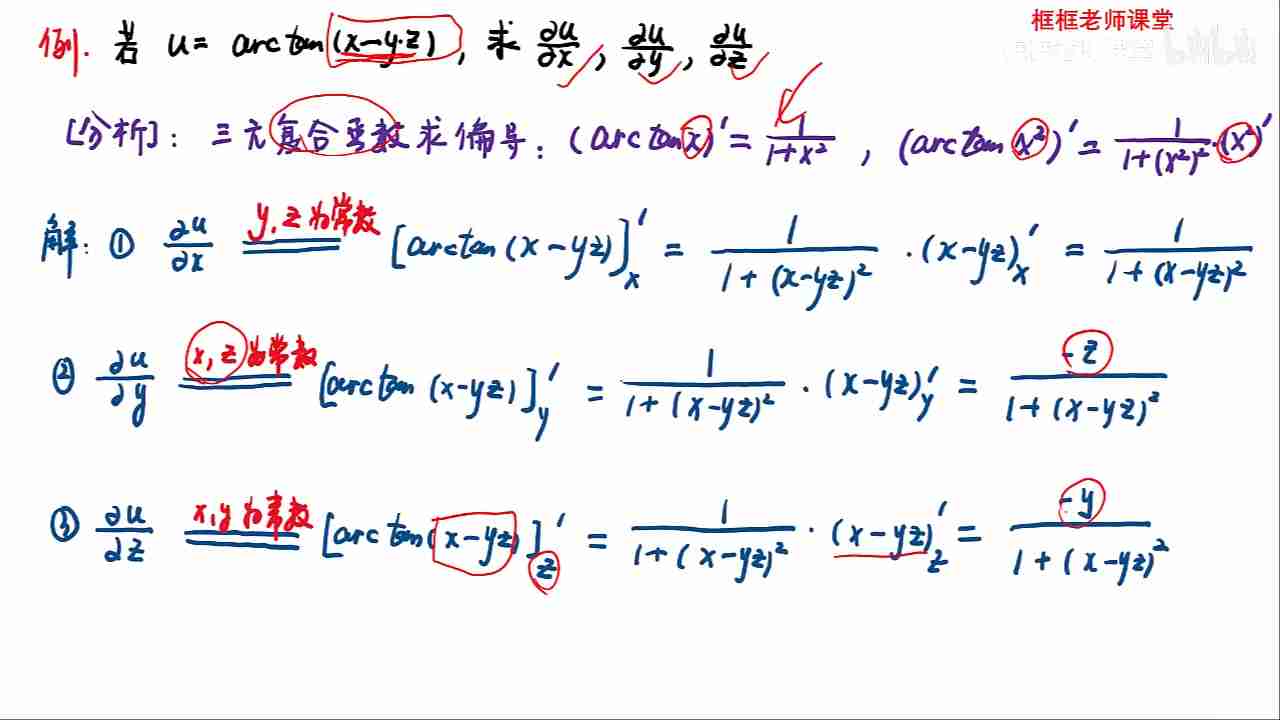 框框老师课堂
例. 若 u = arctan(x-y·z), 求 ∂u/∂x, ∂u/∂y, ∂u/∂z
[分析]: 三元复合函数求偏导: (arctanx)' = 1/(1+x²), (arctan x²)' = 1/(1+(x²)²)·(x²)'
解: ① ∂u/∂x y,z为常数 [arctan(x-yz)]'x = 1/(1+(x-yz)²) · (x-yz)'x = 1/(1+(x-yz)²)
② ∂u/∂y x,z为常数 [arctan(x-yz)]'y = 1/(1+(x-yz)²) · (x-yz)'y = -z/(1+(x-yz)²)
③ ∂u/∂z x,y为常数 [arctan(x-yz)]'z = 1/(1+(x-yz)²) · (x-yz)'z = -y/(1+(x-yz)²)